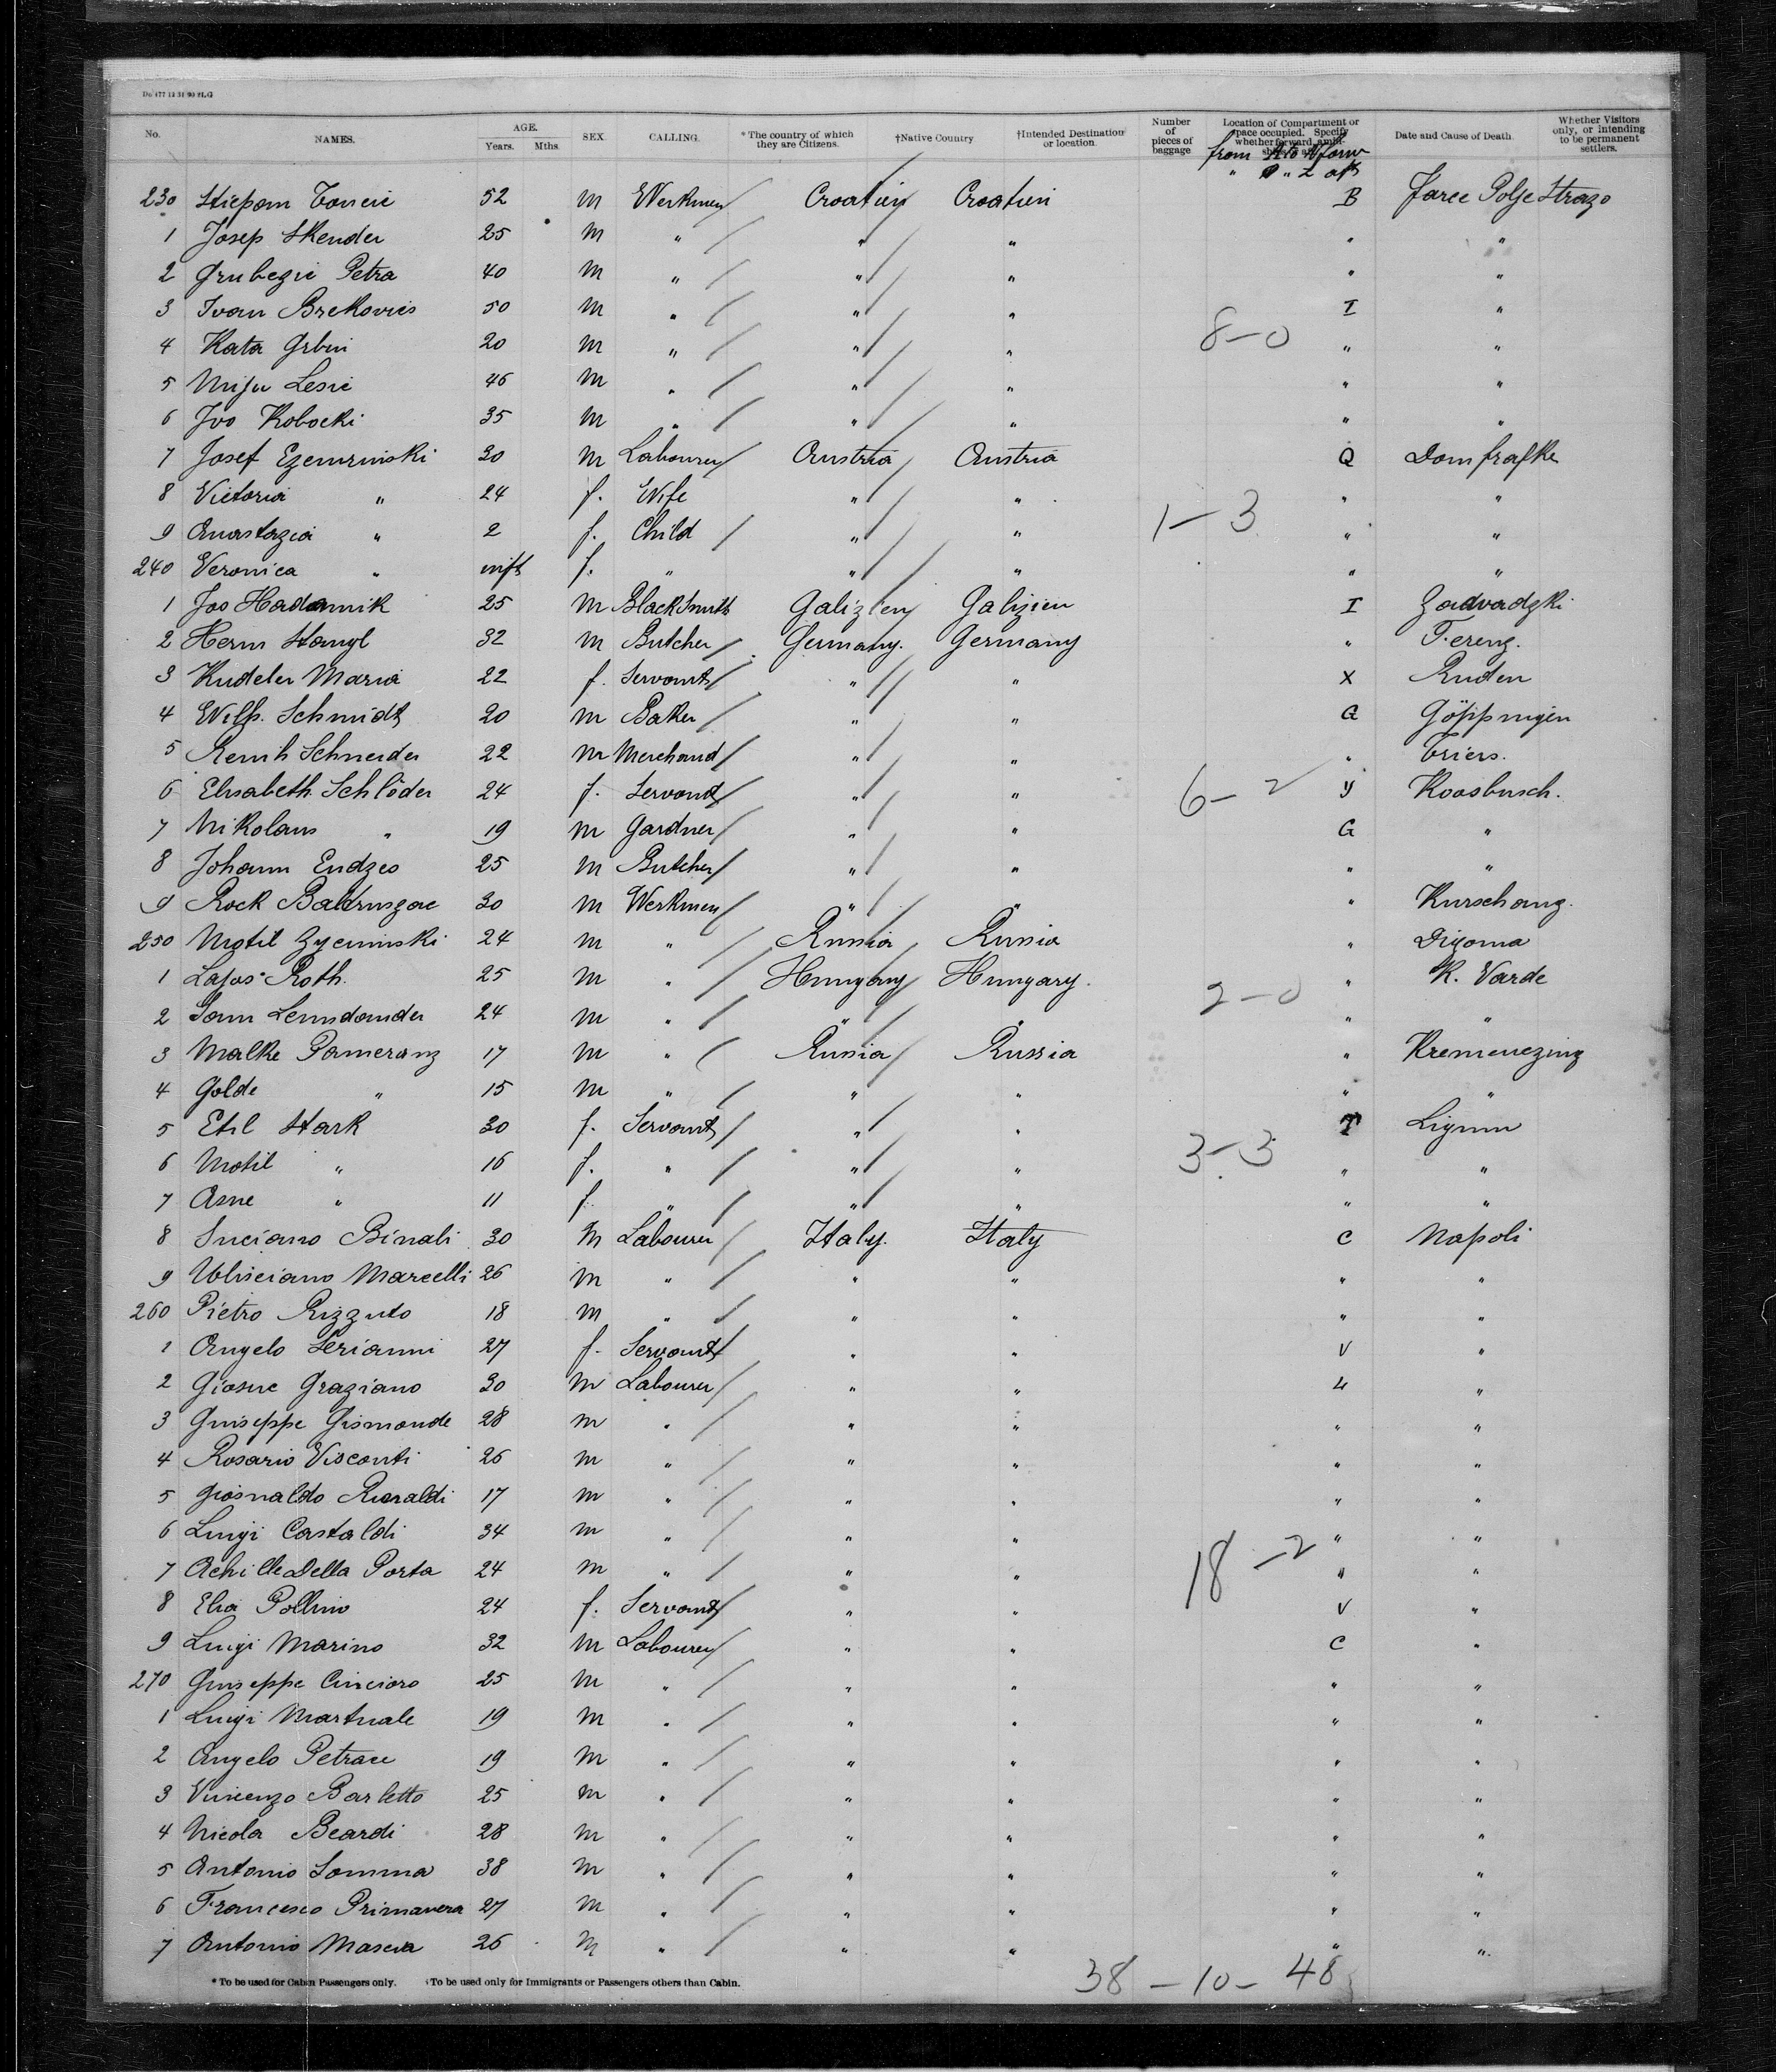 Do 477 12 31 90 H.G
No. NAMES. AGE. Years. Mths. SEX CALLING. *The country of which they are Citizens. †Native Country †Intended Destination or location. Number of pieces of baggage Location of Compartment or space occupied. Specify whether forward, Date and Cause of Death Whether Visitors only, or intending to be permanent settlers.
from A to forw
230 Stiepam 52 m Werkmen Croatien Croatien B Jarce Polje Strazo
1 Josep Skender 25 m " " " " "
2 Grubegie Petra 40 m " " " " "
3 Ivan Brekovies 50 m " " " I "
4 Kata Grbin 20 m " " " 8-0 " "
5 Miju Lesie 46 m " " " " "
6 Ivo Kobocki 35 m " " " " "
7 Josef 30 m Labourer Austria Austria Q Domfrafke
8 Victoria " 24 f. Wife " " " "
9 Anastazia " 2 f. Child " " 1-3 " "
240 Veronica " inft f. " " " " "
1 Jos Hadamik 25 m BlackSmith Galizien Galizien I Zadvadzki
2 Herm Stangl 32 m Butcher Germany. Germany " Fereng.
3 Kudeler Maria 22 f. Servant " " X Ruden
4 Wilh. Schmidt 20 m Baker " " G Göppingen
5 Reinh Schneider 22 m Merchand " " " Triers.
6 Elisabeth Schlöder 24 f. Servant " " 6-2 y Koosbusch.
7 Nikolaus " 19 m Gardner " " G "
8 Johann Endzes 25 m Butcher " " " "
9 Rock 30 m Werkmen " " " Kurschang.
250 Motil Zyeminski 24 m " Russia Russia " Digoma
1 Lajos Roth. 25 m " Hungary Hungary. " K. Varde
2 24 m " " " 2-0 " "
3 Malke Pameranz 17 m " Russia Russia " Kremenezing
4 Golde " 15 m " " " " "
5 Etil Stark 30 f. Servant " " T Ligum
6 Motil " 16 f. " " " 3-3 " "
7 Asne " 11 f. " " " " "
8 Luciano Binali 30 m Labourer Italy. Italy C Napoli
9 Ulisciano Marcelli 26 m " " " " "
260 Pietro Rizzuto 18 m " " " " "
1 Angelo Serianni 27 f. Servant " " V "
2 Giosue Graziano 30 m Labourer " " "
3 Guiseppe Gismonde 28 m " " " " "
4 Rosario Visconti 26 m " " " " "
5 Giosnaldo 17 m " " " " "
6 Luigi Castaldi 34 m " " " " "
7 Achille Della Porta 24 m " " " 18-2 " "
8 Elia Pollino 24 f. Servant " " V "
9 Luigi Marino 32 m Labourer " " C "
270 Guiseppe Cincioro 25 m " " " " "
1 Luigi Martuale 19 m " " " " "
2 Angelo Petrace 19 m " " " " "
3 Vincenzo Barletto 25 m " " " " "
4 Nicola Beardi 28 m " " " " "
5 Antonio Somma 38 m " " " " "
6 Francesco Primavera 27 m " " " " "
7 Antonio Mascia 26 m " " " " "
38 - 10 - 48
*To be used for Cabin Passengers only. †To be used only for Immigrants or Passengers others than Cabin.